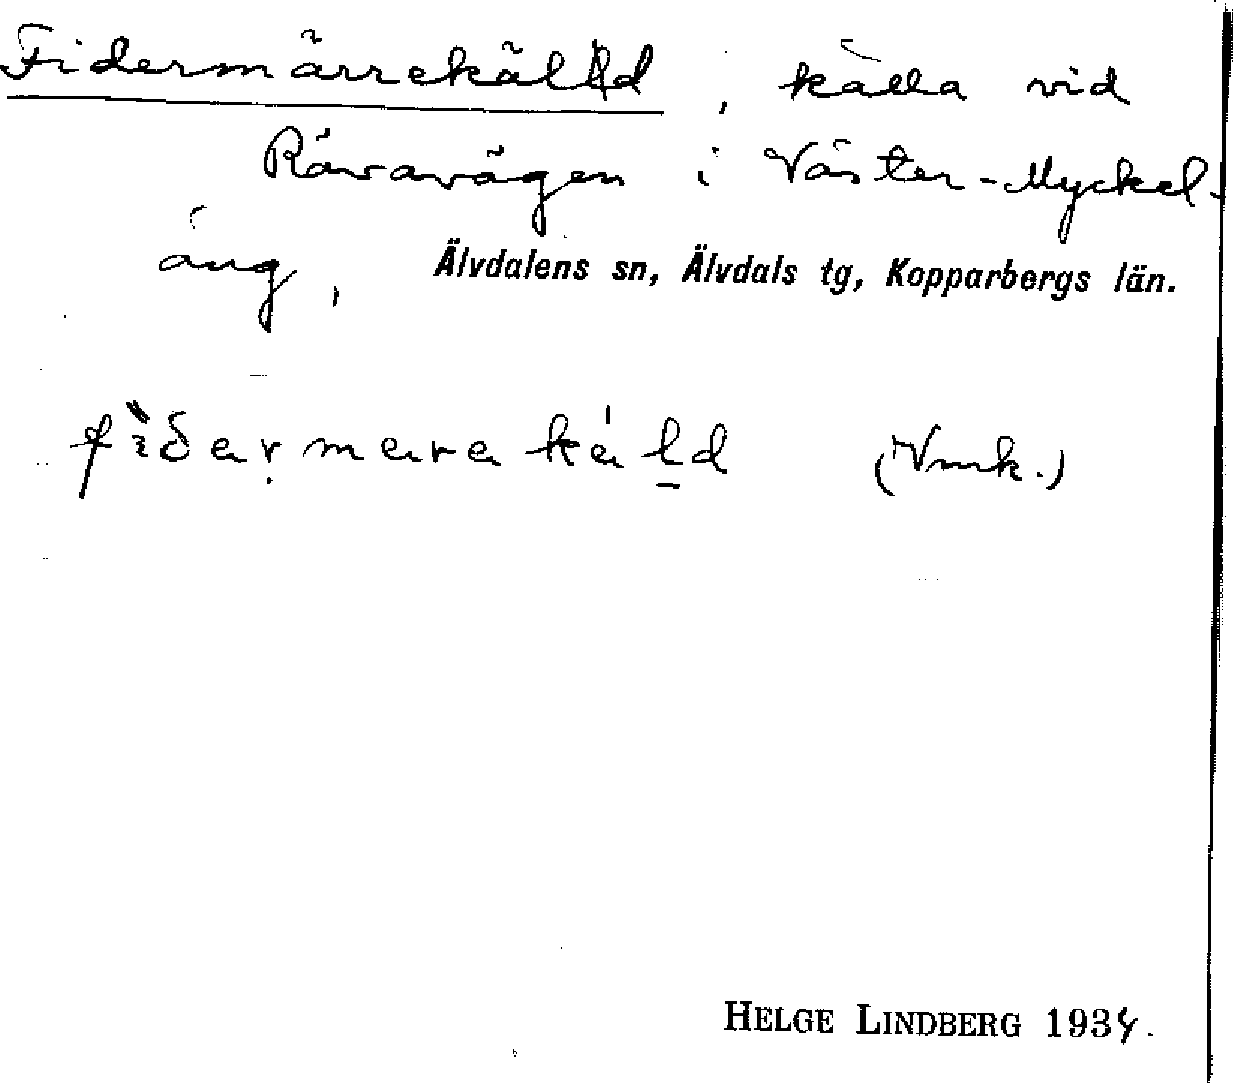 Fidermärrekäld, källa vid
Råvavägen i Väster-Myckel-
äng, Älvdalens sn, Älvdals tg, Kopparbergs län.
(Vmk.)
HELGE LINDBERG 1934.